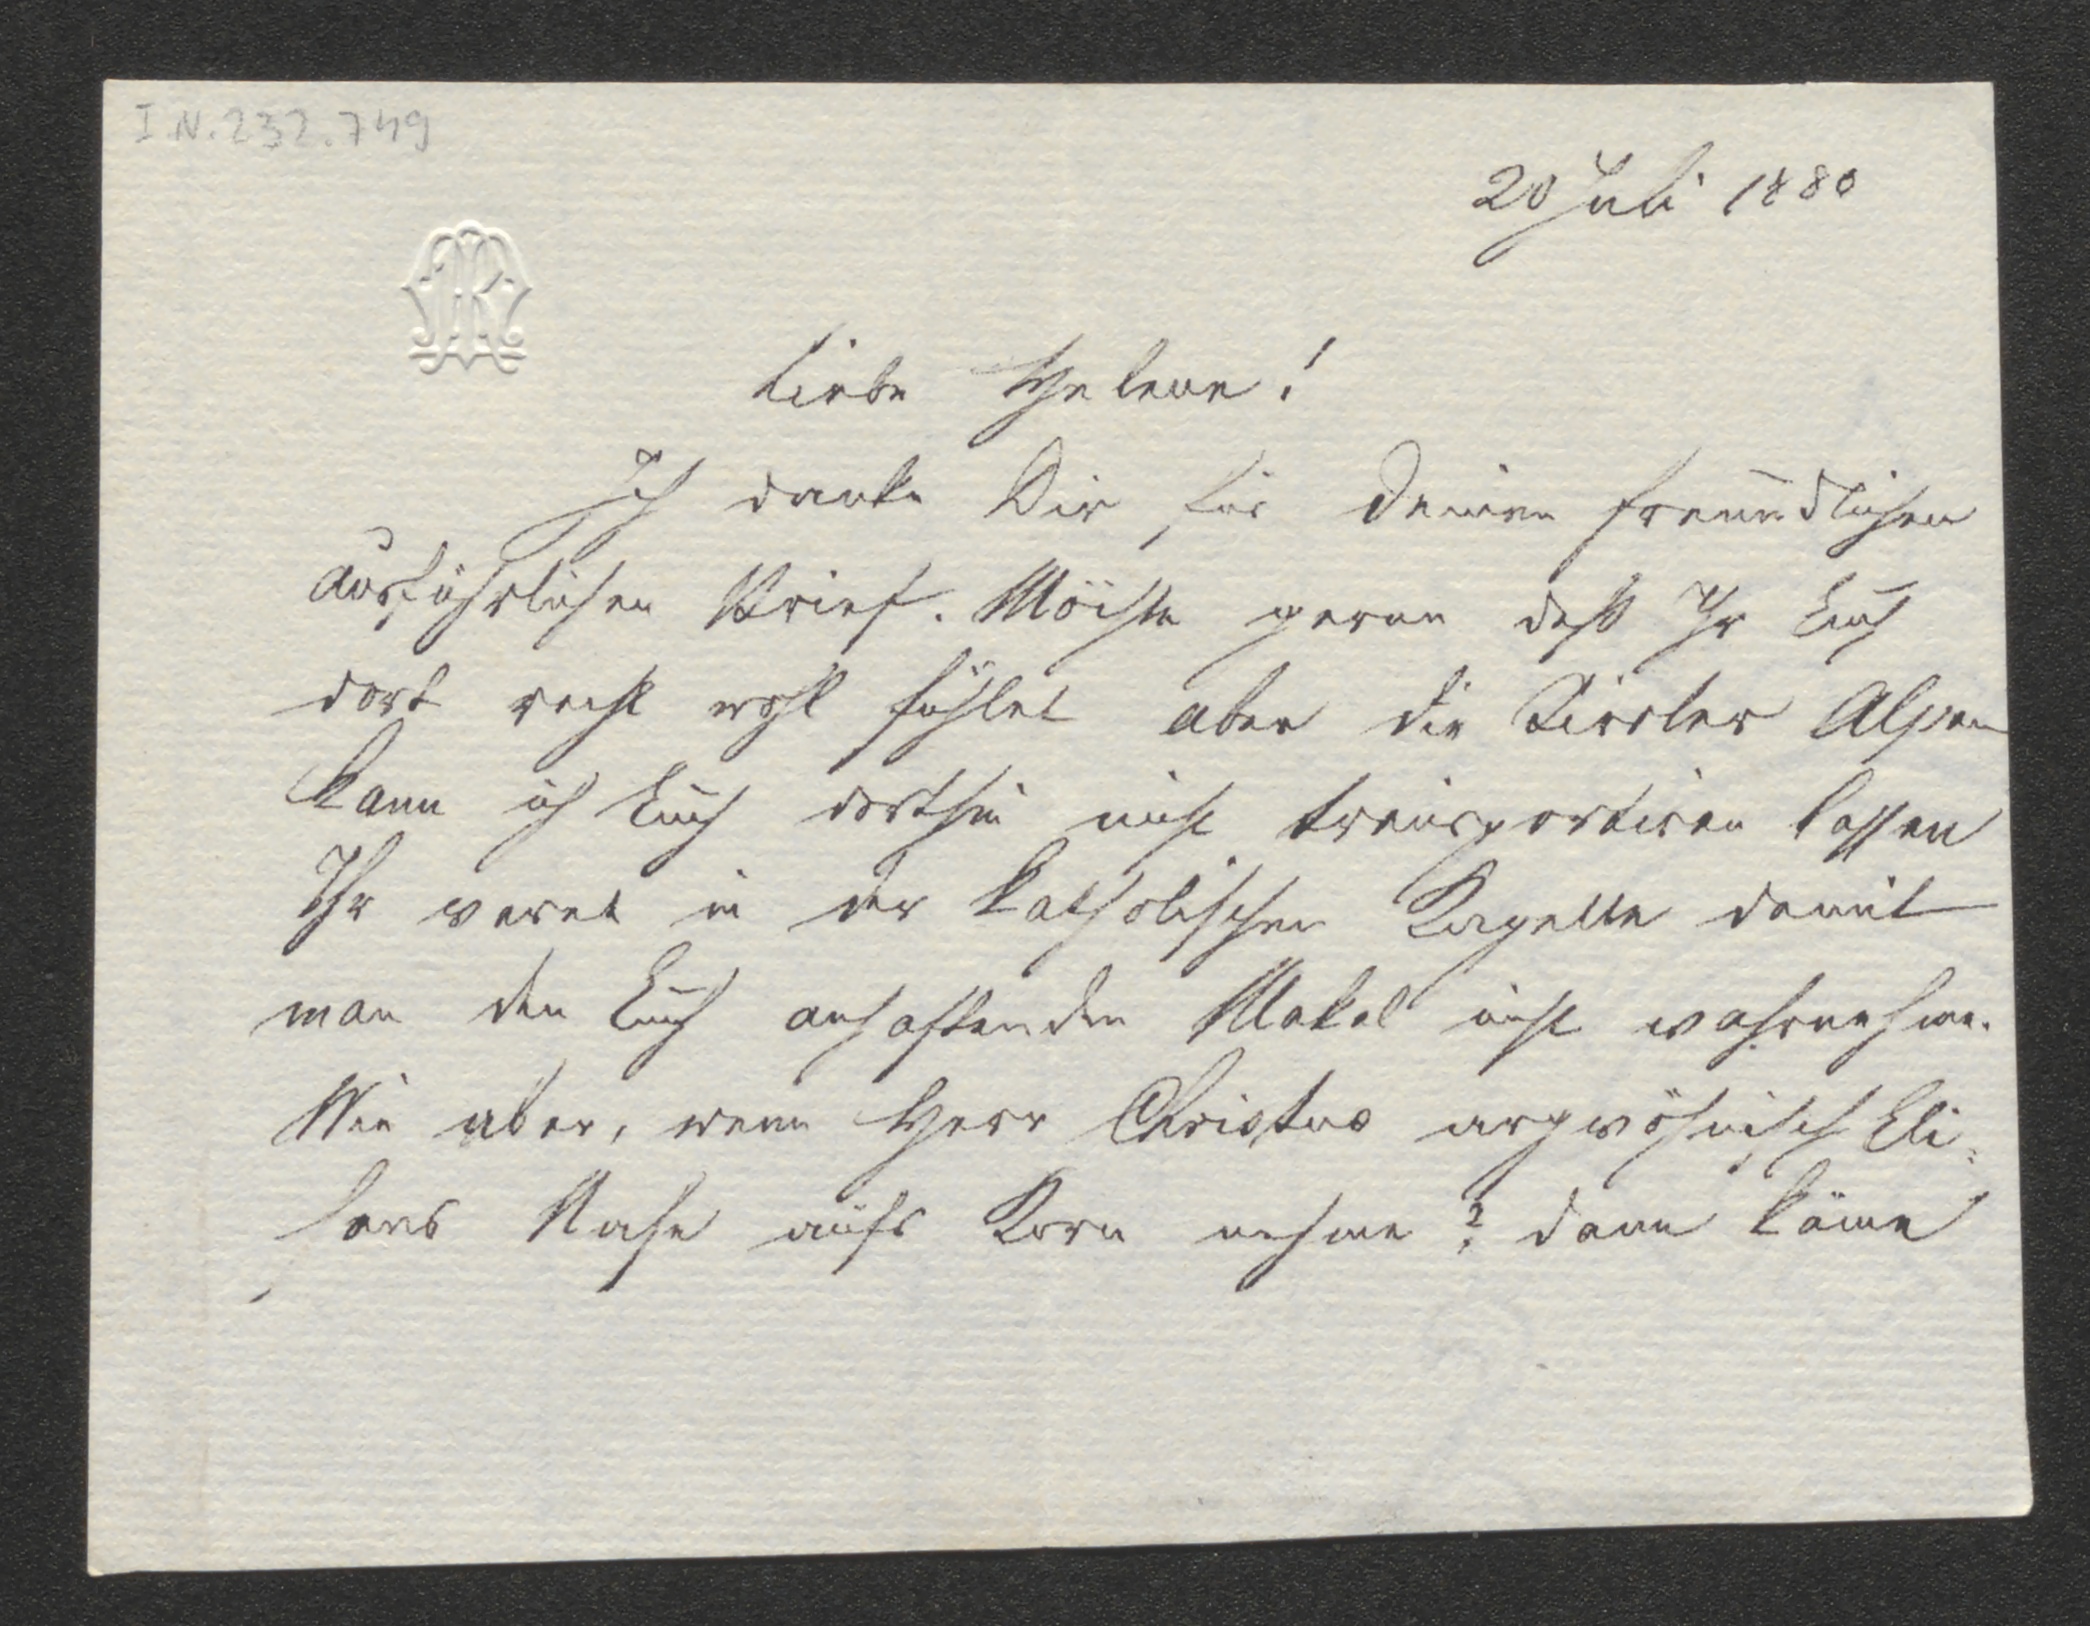 I.N. 232.749
20 Juli 1880
Liebe Helene!
Ich danke Dir für Deinen freundlichen
ausführlichen Brief. Möchte gerne daß Ihr Euch
dort recht wohl fühlet aber die Tiroler Alpen
kann ich Euch dorthin nicht transportiren lassen
Ihr waret in der katholischen Kapelle damit
man den Euch anhaftenden Makel nicht wahrnehme.
Wie aber, wenn Herr Christus argwöhnisch
Nase aufs Korn nehme? dann käme